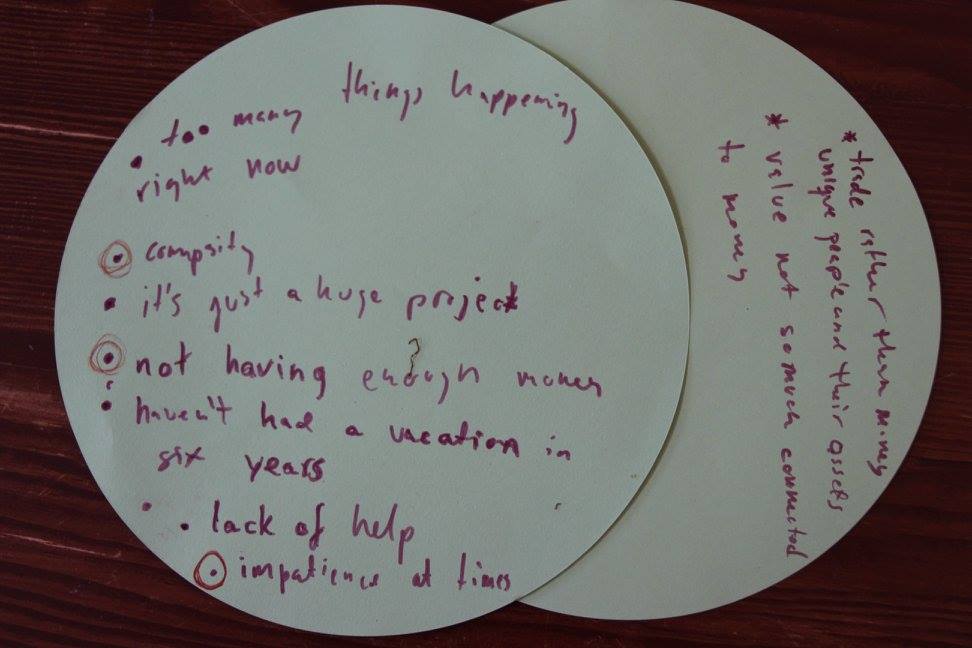 • too many things happening
right now
• compsity
• it's just a huge project
• not having enough money
• haven't had a vacation in
six years
• lack of help
• impatience at times
* trade rather than money
unique people and their assets
* value not so much connected
to money